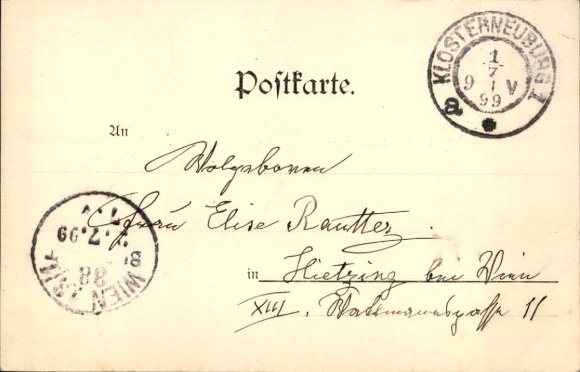 Postkarte.
KLOSTERNEUBURG 1
1
7
9 V
99
a
An
Wolgeboren
Frau Elise Rautter.
in Hietzing bei Wien
XIII, 11
WIEN
88
7.99